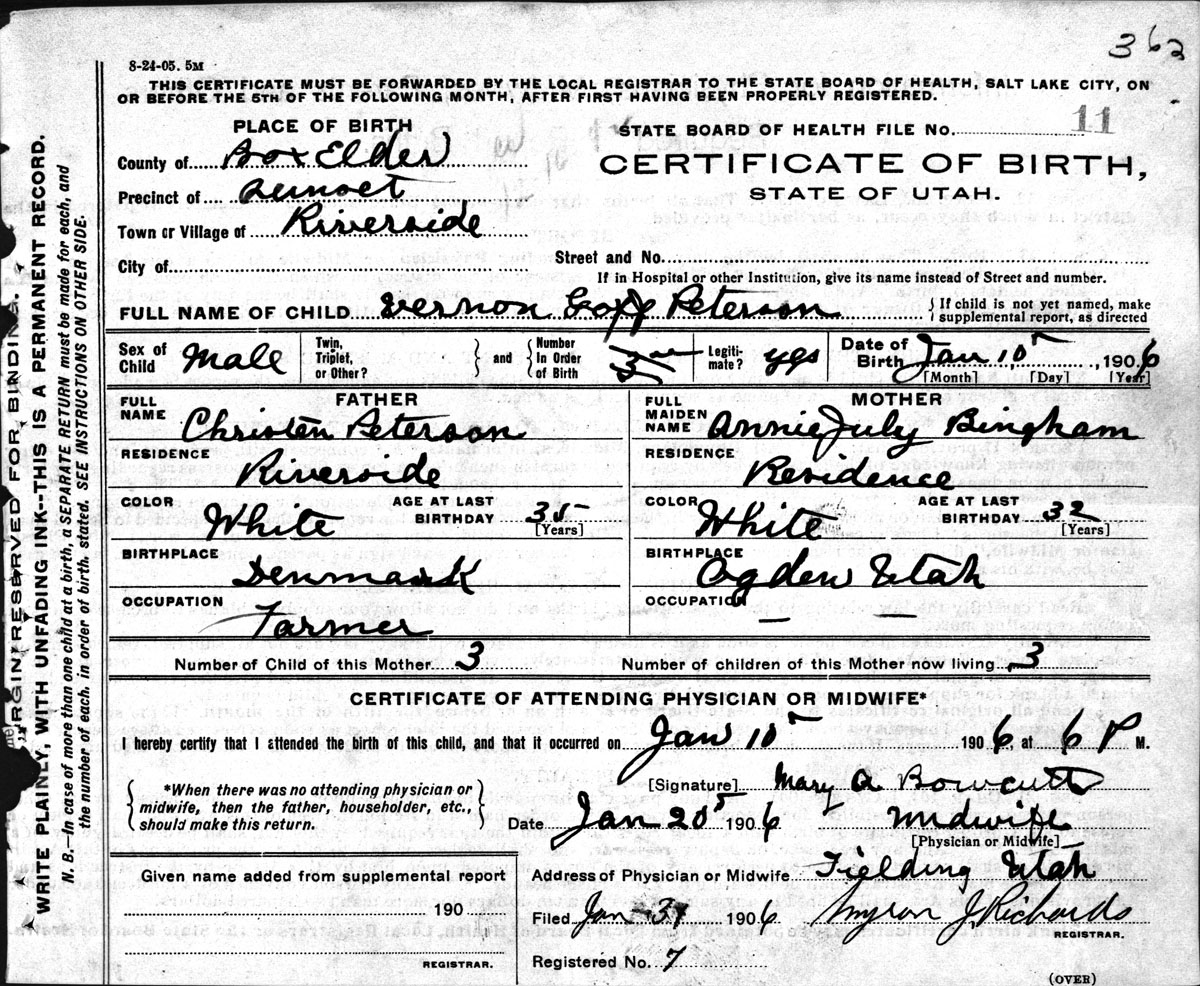 362
8-24-05. 5M
THIS CERTIFICATE MUST BE FORWARDED BY THE LOCAL REGISTRAR TO THE STATE BOARD OF HEALTH, SALT LAKE CITY, ON
OR BEFORE THE 5TH OF THE FOLLOWING MONTH, AFTER FIRST HAVING BEEN PROPERLY REGISTERED.
PLACE OF BIRTH
STATE BOARD OF HEALTH FILE No. 11
County of Box Elder
CERTIFICATE OF BIRTH,
STATE OF UTAH.
Precinct of
Town or Village of Riverside
City of
Street and No.
If in Hospital or other Institution, give its name instead of Street and number.
FULL NAME OF CHILD Vernon Peterson
{ If child is not yet named, make
supplemental report, as directed
Sex of Child Male
Twin, Triplet, or Other?
} and {
Number In Order of Birth 3
Legiti-mate? yes
Date of Birth Jan 10, 1906
[Month] [Day] [Year]
FATHER
FULL NAME Christen Peterson
RESIDENCE Riverside
COLOR White
AGE AT LAST BIRTHDAY 35 [Years]
BIRTHPLACE Denmark
OCCUPATION Farmer
MOTHER
FULL MAIDEN NAME Annie July Bingham
RESIDENCE Residence
COLOR White
AGE AT LAST BIRTHDAY 32 [Years]
BIRTHPLACE Ogden Utah
OCCUPATION — —
Number of Child of this Mother 3
Number of children of this Mother now living 3
CERTIFICATE OF ATTENDING PHYSICIAN OR MIDWIFE*
I hereby certify that I attended the birth of this child, and that it occurred on Jan 10 1906, at 6 P M.
{ *When there was no attending physician or
midwife, then the father, householder, etc.,
should make this return. }
[Signature] Mary A Bowcutt
Date Jan 20 1906 Midwife
[Physician or Midwife]
Given name added from supplemental report
190
REGISTRAR.
Address of Physician or Midwife Fielding Utah
Filed Jan 31 1906 Myron J. Richards
REGISTRAR.
Registered No. 7
(OVER)
MARGIN RESERVED FOR BINDING.
WRITE PLAINLY, WITH UNFADING INK--THIS IS A PERMANENT RECORD.
N. B.—In case of more than one child at a birth, a SEPARATE RETURN must be made for each, and
the number of each, in order of birth, stated. SEE INSTRUCTIONS ON OTHER SIDE.